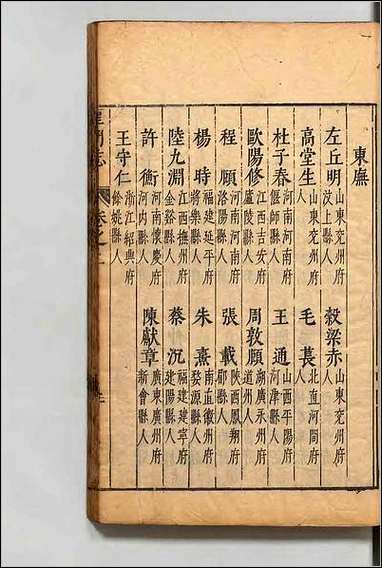 東廡
左丘明 山東兖州府汶上縣人 穀梁赤 山東兖州府人
高堂生 山東兖州府人 毛萇 北直河間府人
杜子春 河南河南府偃師縣人 王通 山西平陽府河津縣人
歐陽修 江西吉安府廬陵縣人 周敦頤 湖廣永州府道州人
程頤 河南河南府洛陽縣人 張載 陝西鳳翔府郿縣人
楊時 福建延平府將樂縣人 朱熹 南直徽州府婺源縣人
陸九淵 江西撫州府金谿縣人 蔡沉 福建建寧府建陽縣人
許衡 河南懷慶府河内縣人 陳獻章 廣東廣州府新會縣人
王守仁 浙江紹興府餘姚縣人
聖門志 卷之